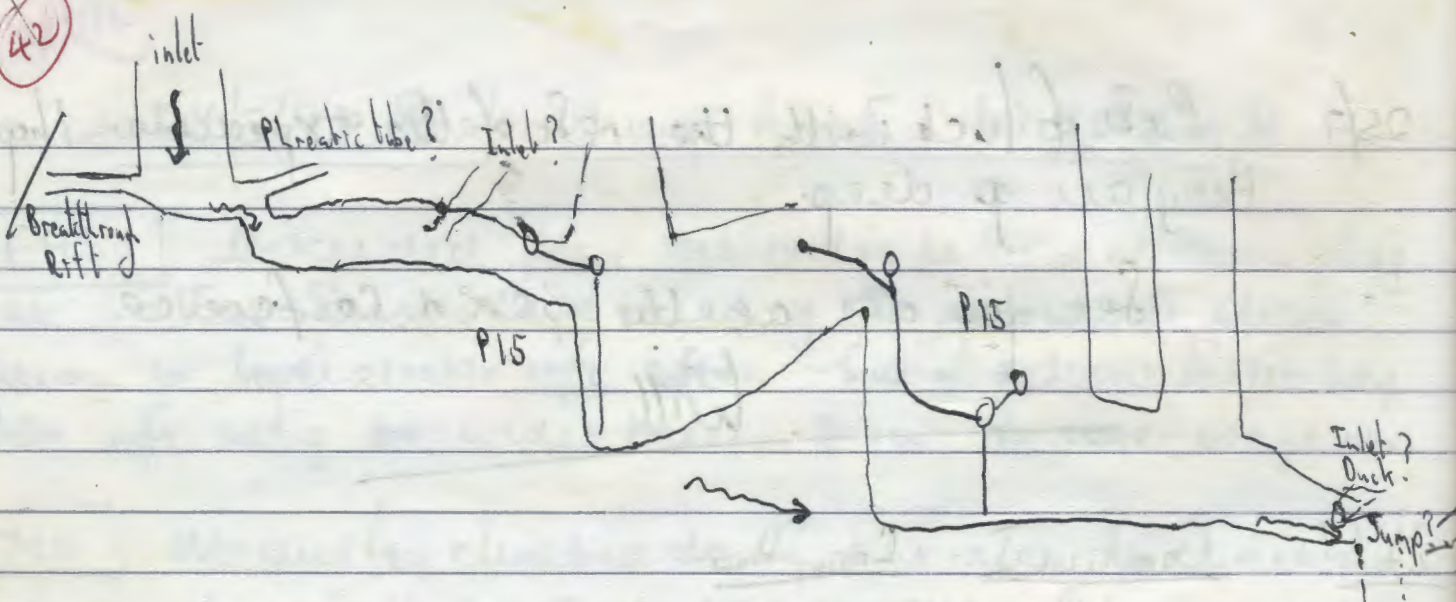 42
inlet
Phreatic tube?
Inlet?
Breakthrough
Rift
P15
P15
Inlet?
Duck.
Sump?